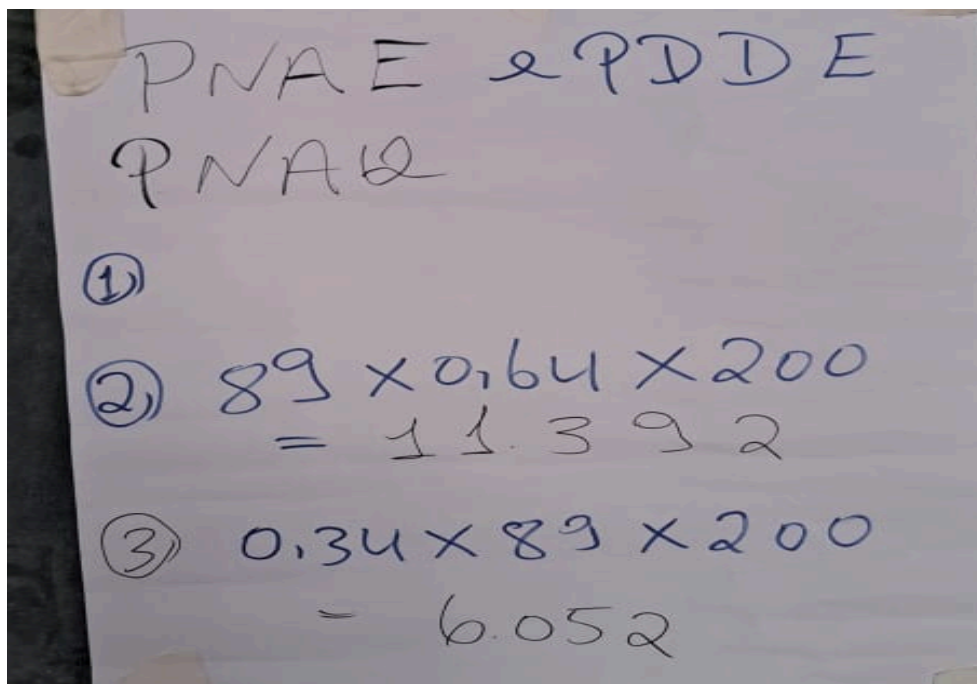 PNAE e PDDE
PNAQ
1)
2) 89 x 0,64 x 200
= 11.392
3) 0.34 x 89 x 200
= 6.052